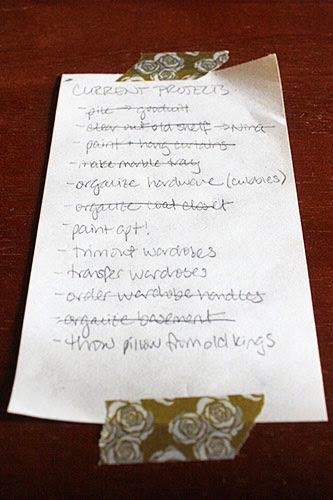 CURRENT PROJECTS
- pile → goodwill
- clear out old shelf → Nina
- paint + hang curtains
- make marble tray
- organize hardware (cubbies)
- organize coat closet
- paint apt!
- trim out wardrobes
- transfer wardrobes
- order wardrobe handles
- organize basement
- throw pillow from old kings